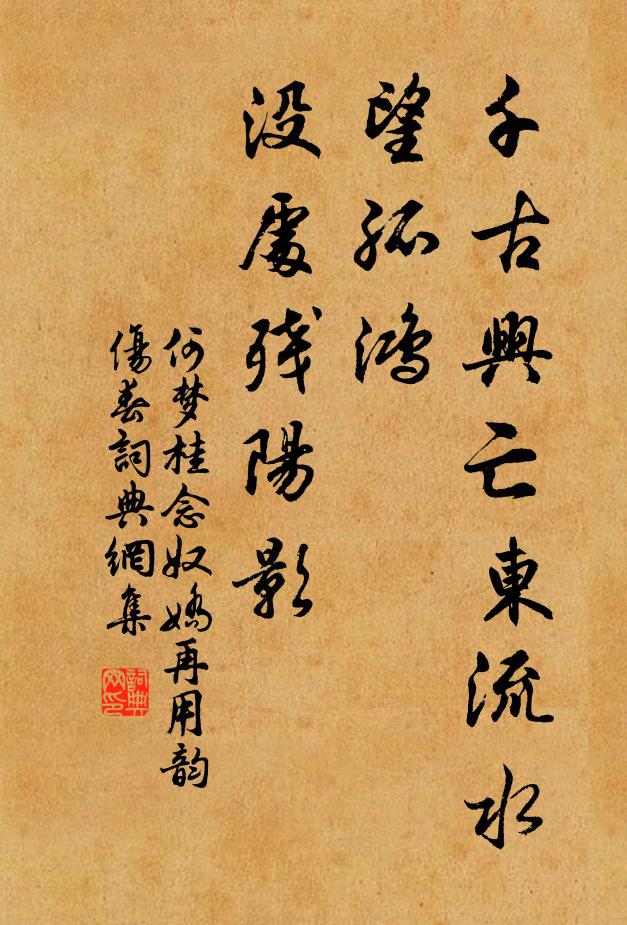 千古興亡東流水
望孤鴻
没處残陽影
何梦桂念奴嬌再用韵
傷春詞典網集
詞典
网印